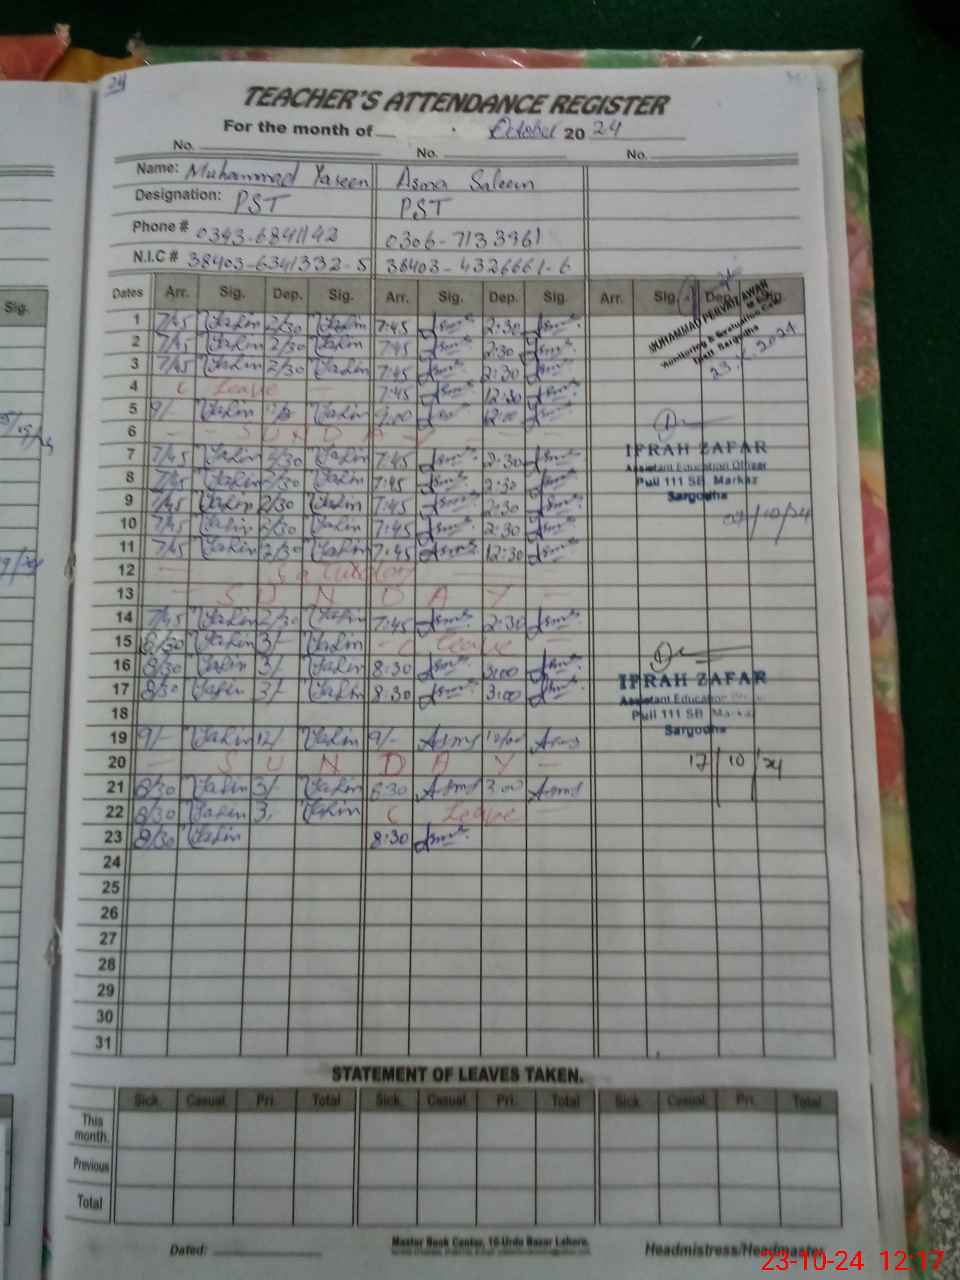 24
TEACHER'S ATTENDANCE REGISTER
For the month of October 20 24
No. No. No.
Name: Muhammad Yaseen Asma Saleem
Designation: PST PST
Phone # 0343-6841142 0306-7133961
N.I.C # 38403-6341332-5 38403-4326661-6
Sig. Dates Arr. Sig. Dep. Sig. Arr. Sig. Dep. Sig. Arr. Sig. Dep. Sig.
1 7/45 Yasin 2/30 Yasin 7:45 2:30
2 7/45 Yasin 2/30 Yasin 7:45 2:30
3 7/45 Yasin 2/30 Yasin 7:45 2:30
4 C Leave 7:45 12:30
5 9/- Yasin Yasin 9:00 12:00
6 SUNDAY
7 7/45 Yasin 2/30 Yasin 7:45 2:30
8 7/45 Yasin 2/30 Yasin 7:45 2:30
9 7/45 Yasin 2/30 Yasin 7:45 2:30
10 7/45 Yasin 2/30 Yasin 7:45 2:30
11 7/45 Yasin 2/30 Yasin 7:45 12:30
12
13 SUNDAY
14 7/45 Yasin 2/30 Yasin 7:45 2:30
15 8/30 Yasin 3/- Yasin C leave
16 8/30 Yasin 3/- Yasin 8:30 3:00
17 8/30 Yasin 3/- Yasin 8:30 3:00
18
19 9/- Yasin 12/- Yasin 9/- Asma Asma
20 SUNDAY
21 8/30 Yasin 3/- Yasin 8:30 Asma 3:00 Asma
22 8/30 Yasin 3 Yasin C Leave
23 8/30 Yasin 8:30
24
25
26
27
28
29
30
31
MUHAMMAD PERVAIZ AWAN
Monitoring & Evaluation Cell
Sargodha
IFRAH ZAFAR
Assistant Education Officer
Pull 111 SB, Markaz
Sargodha
07/10/24
IFRAH ZAFAR
Assistant Education
Pull 111 SB, Markaz
Sargodha
17/10/24
STATEMENT OF LEAVES TAKEN.
Sick. Casual. Pri. Total Sick. Casual. Pri. Total Sick. Casual. Pri. Total
This month.
Previous
Total
Dated: Master Book Center, 10-Urdu Bazar Lahore. Headmistress/Headmaster
23-10-24 12:17